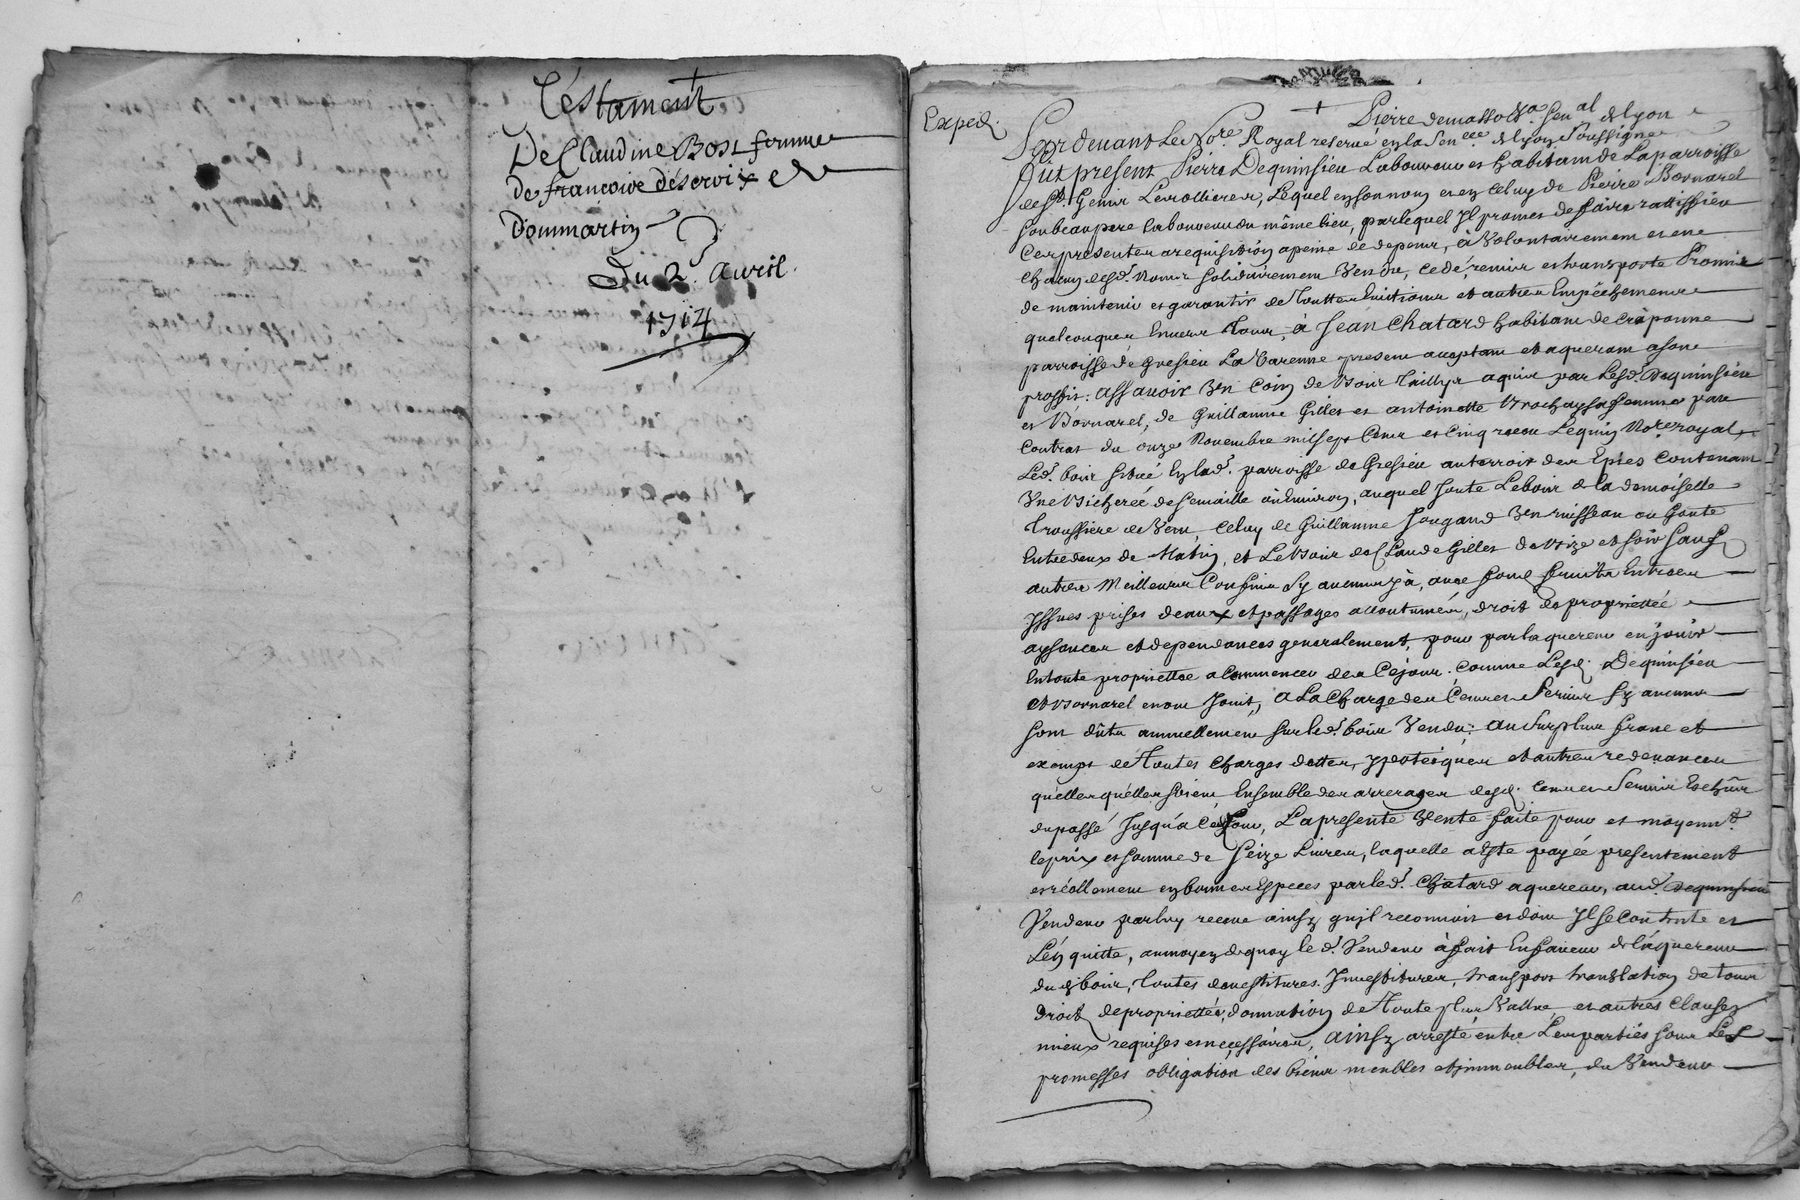 Testament
De Claudine Bost femme
de françoise déscroix de
Dommartin
Du 2 Avril
1714
Exped.
Pierre demasso Sen.al de Lyon
Pardevant Le No.re Royal reservé en la Sen.cee de lyon Soussigné
fut present Pierre Dequinsieu Laboureur et habitant de La parroisse
de S.t Genis Lerollieres, Lequel en son nom et en celuy de Pierre Bornarel
son beaupere laboureur du même lieu, par lequel Jl promet de faire rattiffier
Ces presentes a requisition apeine de depens, à volontairement et
chacun desd. Noms solidairement Vendu, cedé, remis et transporté Promis
de maintenir et garantir de Touttes Evictions et autres Empéchements
quelconques Envers Tous, à Jean Chatard habitant de Craponne
parroisse de gresieu La Varenne present acceptant et aquerant a son
proffit: assavoir Un Coin de bois Tailly aquis par Lesd. Dequinsieu
et Bornarel, de Guillaume Gilles et antoinette sa femme par
Contrat du onze Novembre mil sept Cent et Cinq receu Lequin No.re royal
Led. bois situé En lad. parroisse de Gresieu au terroir des Epies Contenant
Une bicherée de semaille où Environ, auquel Joute Le bois de la demoiselle
Troussiere de Vent, Celuy de Guillaume Jougand Un ruisseau ou Goute
Entredeux de Matin, et Le bois de Claude Gilles de bize et soir sauf
autres Meilleurs Confins sy aucuns y à, avec fond fruits Entrées
Jssues prises deaux et passages accoutumés, droit de proprietée
aysances et dependances generalement, pour par laquereur en jouir
En toute proprietée a Commencer des Cejour. Comme Lesd. Dequinsieu
et Bornarel en ont Jouit, a La Charge des Cences Servis sy aucuns
sont dûts annuellement sur led. bois Vendu; au surplus franc et
exempt de Toutes Charges dettes, ypoteiques et autres redevances
quelles quelles soient Ensemble des arrerages desd. cences Servis Echûs
du passé Jusqu'a Ce Jour, La presente Vente faite pour et moyenn.t
le prix et somme de Seize Livres, laquelle a Esté payée presentement
et réellement en bonnes Especes par led. Chatard aquereur, aud. Dequinsieu
Vendeur par luy receue ainsy quil reconnoit et dont Jl se Contente et
L'en quitte, au moyen de quoy led. Vendeur à fait En faveur de l'aquereur
dud. bois, toutes devestitures. Jnvestitures, transport translation de tous
droits de proprietée, donnation de Toute plus Vallue et autres Clauses
mieux requises et necessaires, Ainsy arresté entre Les parties sous Les
promesses obligation des biens meubles et immeubles, du Vendeur